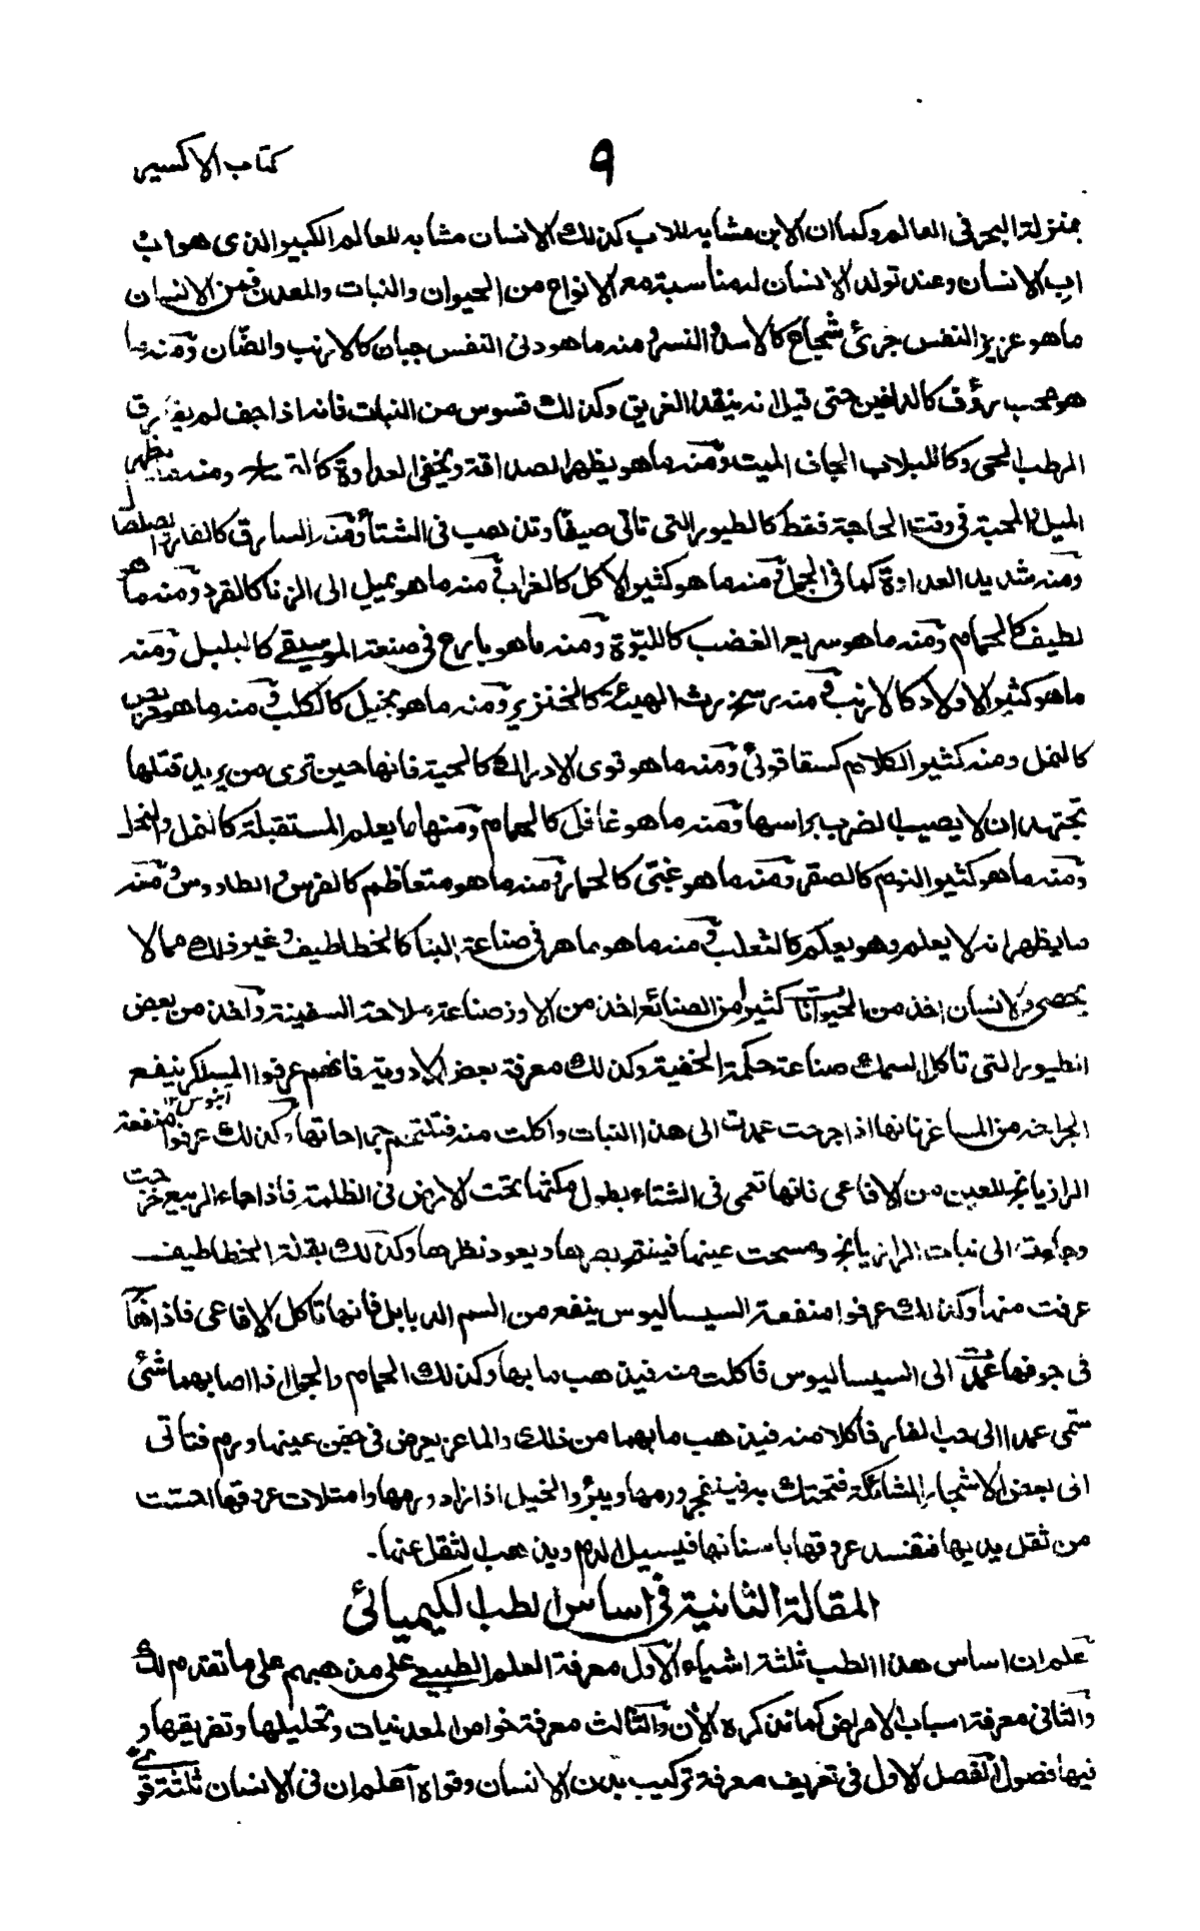 كتاب الاكسير
٩
بمنزلة البحر فى العالم وكما ان الابن مشابه للاب كذلك الانسان مشابه للعالم الكبير الذى هو اب
اب الانسان وعند تولد الانسان له مناسبة مع الانواع من الحيوان والنبات والمعدن فمن الانسان
ما هو عزيز النفس جرئ شجاع كالاسد والنسر ومنه ما هو دنى النفس جبان كالارنب والضان ومنه ما
هو محب رؤف كالدلفين حتى قيل انه ينقذ الغريق وكذلك قسوس من النبات فانه اذا جف لم يفارق
الرطب الحى وكاللبلاب الجاف الميت ومنه ما هو يظهر الصداقة ويخفى العداوة ومنه ما يظهر
الميل والمحبة فى وقت الحاجة فقط كالطيور التى تاتى صيفا وتذهب فى الشتا ومنه السارق كالفار
ومنه شديد العداوة كما فى الجمل ومنه ما هو كثير الاكل كالغراب ومنه ما هو يميل الى الزنا كالقرد ومنه ما هو
لطيف كالحمام ومنه ما هو سريع الغضب كاللبوة ومنه ما هو بارع فى صنعة الموسيقى كالبلبل ومنه
ما هو كثير الاولاد كالارنب ومنه رث الهيئة كالخنزير ومنه ما هو بخيل كالكلب ومنه ما هو حريص
كالنمل ومنه كثير الكلام كسقاقوئى ومنه ما هو قوى الادراك كالحية فانها حين ترى من يريد قتلها
تجتهد ان لا يصيب الضرب براسها ومنه ما هو غافل كالحمام ومنها ما يعلم المستقبلة كالنمل والنحل
ومنه ما هو كثير النوم كالصقر ومنه ما هو غبى كالحمار ومنه ما هو متعاظم كالفرس والطاووس ومنه
ما يظهر انه لا يعلم وهو يعلم كالثعلب ومنه ما هو ماهر فى صناعة البنا كالخطاطيف وغير ذلك مما لا
يحصى والانسان اخذ من الحيوانات كثيرا من الصنائع اخذ من الاوز صناعة ملاحة السفينة واخذ من بعض
الطيور التى تاكل السمك صناعة حكمة الخفية وكذلك معرفة بعض الادوية فانهم عرفوا المسلكر نيفع
الجراحة من المساعز فانها اذا جرحت عمدت الى هذا النبات واكلت منه فتلتحم جراحاتها وكذلك عرفوا منفعة
الرازيانج للعين من الافاعى فانها تعمى فى الشتاء بطول مكثها تحت الارض فى الظلمة فاذا جاء الربيع خرجت
وجاءت الى نبات الرازيانج ومسحت عينها فينقى بصرها ويعود نظرها وكذلك بقلة الخطاطيف
عرفت منها وكذلك عرفوا منفعة السيساليوس ينفع من السم الدبابل فانها تاكل الافاعى فاذا
فى جوفها عمدت الى السيساليوس فاكلت منه فيذهب ما بها وكذلك الحمام والجمال اذا اصابهما شئ
سمى عمدا الى حب الغار فاكلا منه فيذهب ما بهما من ذلك والماعز يعرض فى جفن عينها ورم فتاتى
الى بعض الاشجار الشائكة فتحتك به فينفجر ورمها ويبرؤ والخيل اذا زاد ورمها وامتلات عروقها احست
من ثقل يديها فتفسد عروقها باسنانها فيسيل الدم ويذهب الثقل عنها۔
المقالة الثانية فى اساس الطب الكيميائى
علم ان اساس هذا الطب ثلثة اشياء الاول معرفة العلم الطبيعى على مذهبهم على ما تقدم لك
والثانى معرفة اسباب الامراض كما نذكره الأن والثالث معرفة خواص المعدنيات وتحليلها وتفريقها و
فيها فصول الفصل الاول فى تعريف معرفة تركيب بدن الانسان وقواه اعلم ان فى الانسان ثلثة قوى